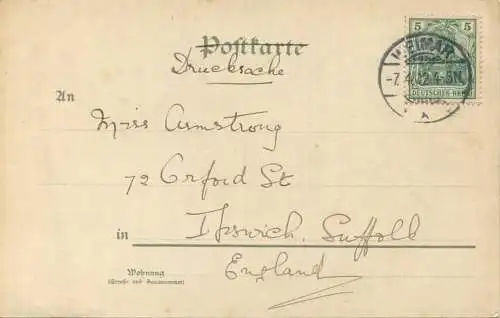 Postkarte
Drucksache
5 5
WEIMAR
-7.4.02.4-5N.
DEUTSCHES REICH
An
Miss Armstrong
72 Orford St
in Ipswich. Suffolk
England
Wohnung
(Straße und Hausnummer)